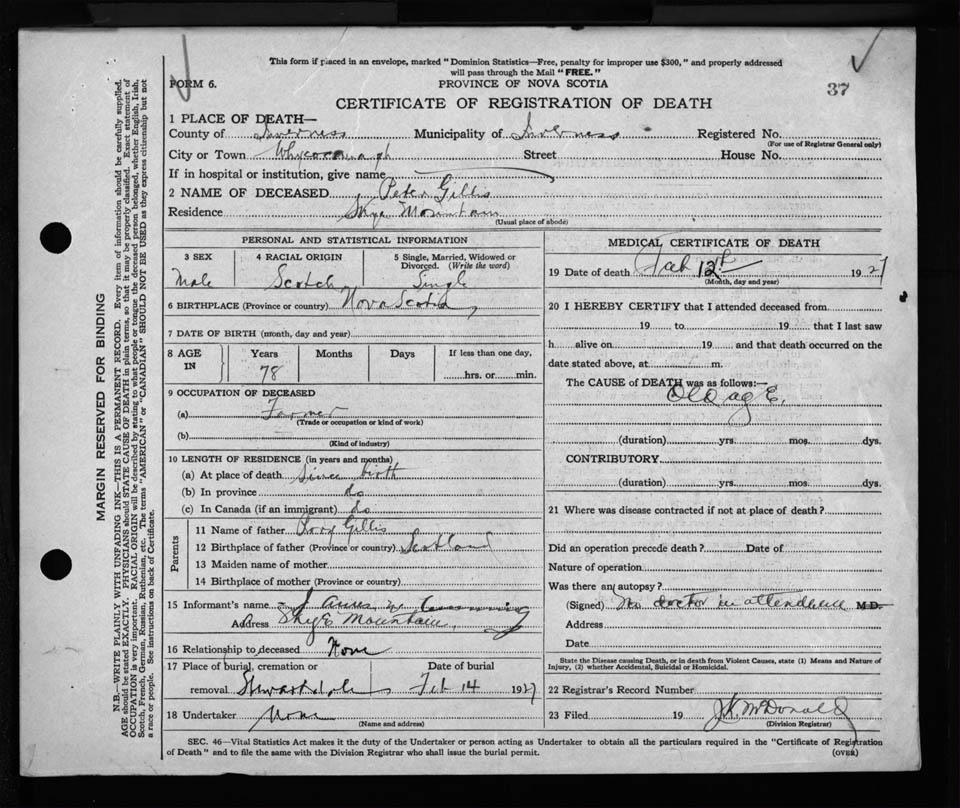 This form if placed in an envelope, marked "Dominion Statistics—Free, penalty for improper use $300," and properly addressed
will pass through the Mail "FREE."
FORM 6.
PROVINCE OF NOVA SCOTIA
37
CERTIFICATE OF REGISTRATION OF DEATH
1 PLACE OF DEATH—
County of Inverness Municipality of Inverness Registered No.
(For use of Registrar General only)
City or Town Whycocomagh Street House No.
If in hospital or institution, give name
2 NAME OF DECEASED Peter Gillis
Residence Skye Mountain
(Usual place of abode)
PERSONAL AND STATISTICAL INFORMATION
3 SEX 4 RACIAL ORIGIN 5 Single, Married, Widowed or
Divorced. (Write the word)
Male Scotch Single
6 BIRTHPLACE (Province or country) Nova Scotia
7 DATE OF BIRTH (month, day and year)
8 AGE IN Years Months Days If less than one day,
78 hrs. or min.
9 OCCUPATION OF DECEASED
(a) Farmer
(Trade or occupation or kind of work)
(b)
(Kind of industry)
10 LENGTH OF RESIDENCE (in years and months)
(a) At place of death Since birth
(b) In province do
(c) In Canada (if an immigrant) do
Parents
11 Name of father Rory Gillis
12 Birthplace of father (Province or country) Scotland
13 Maiden name of mother
14 Birthplace of mother (Province or country)
15 Informant's name
Address Skye Mountain
16 Relationship to deceased None
17 Place of burial, cremation or Date of burial
removal Feb 14 1927
18 Undertaker None
(Name and address)
MEDICAL CERTIFICATE OF DEATH
19 Date of death Feb 12th 1927
(Month, day and year)
20 I HEREBY CERTIFY that I attended deceased from
19 to 19 that I last saw
h alive on 19 and that death occurred on the
date stated above, at m.
The CAUSE of DEATH was as follows:—
Old age.
(duration) yrs. mos. dys.
CONTRIBUTORY
(duration) yrs. mos. dys.
21 Where was disease contracted if not at place of death?
Did an operation precede death? Date of
Nature of operation
Was there an autopsy?
(Signed) No doctor in attendance M.D.
Address
Date
State the Disease causing Death, or in death from Violent Causes, state (1) Means and Nature of
Injury, (2) whether Accidental, Suicidal or Homicidal.
22 Registrar's Record Number
23 Filed 19 McDonald
(Division Registrar)
SEC. 46—Vital Statistics Act makes it the duty of the Undertaker or person acting as Undertaker to obtain all the particulars required in the "Certificate of Registration
of Death" and to file the same with the Division Registrar who shall issue the burial permit.
(OVER)
MARGIN RESERVED FOR BINDING
N.B.—WRITE PLAINLY WITH UNFADING INK—THIS IS A PERMANENT RECORD. Every item of information should be carefully supplied.
AGE should be stated EXACTLY. PHYSICIANS should STATE CAUSE OF DEATH in plain terms, so that it may be properly classified. Exact statement of
OCCUPATION is very important. RACIAL ORIGIN will be described by stating to what people or tongue the deceased person belonged, whether English, Irish,
Scotch, French, German, Russian, Ruthenian, etc. The terms "AMERICAN" or "CANADIAN" SHOULD NOT BE USED as they express citizenship but not
a race or people. See instructions on back of Certificate.